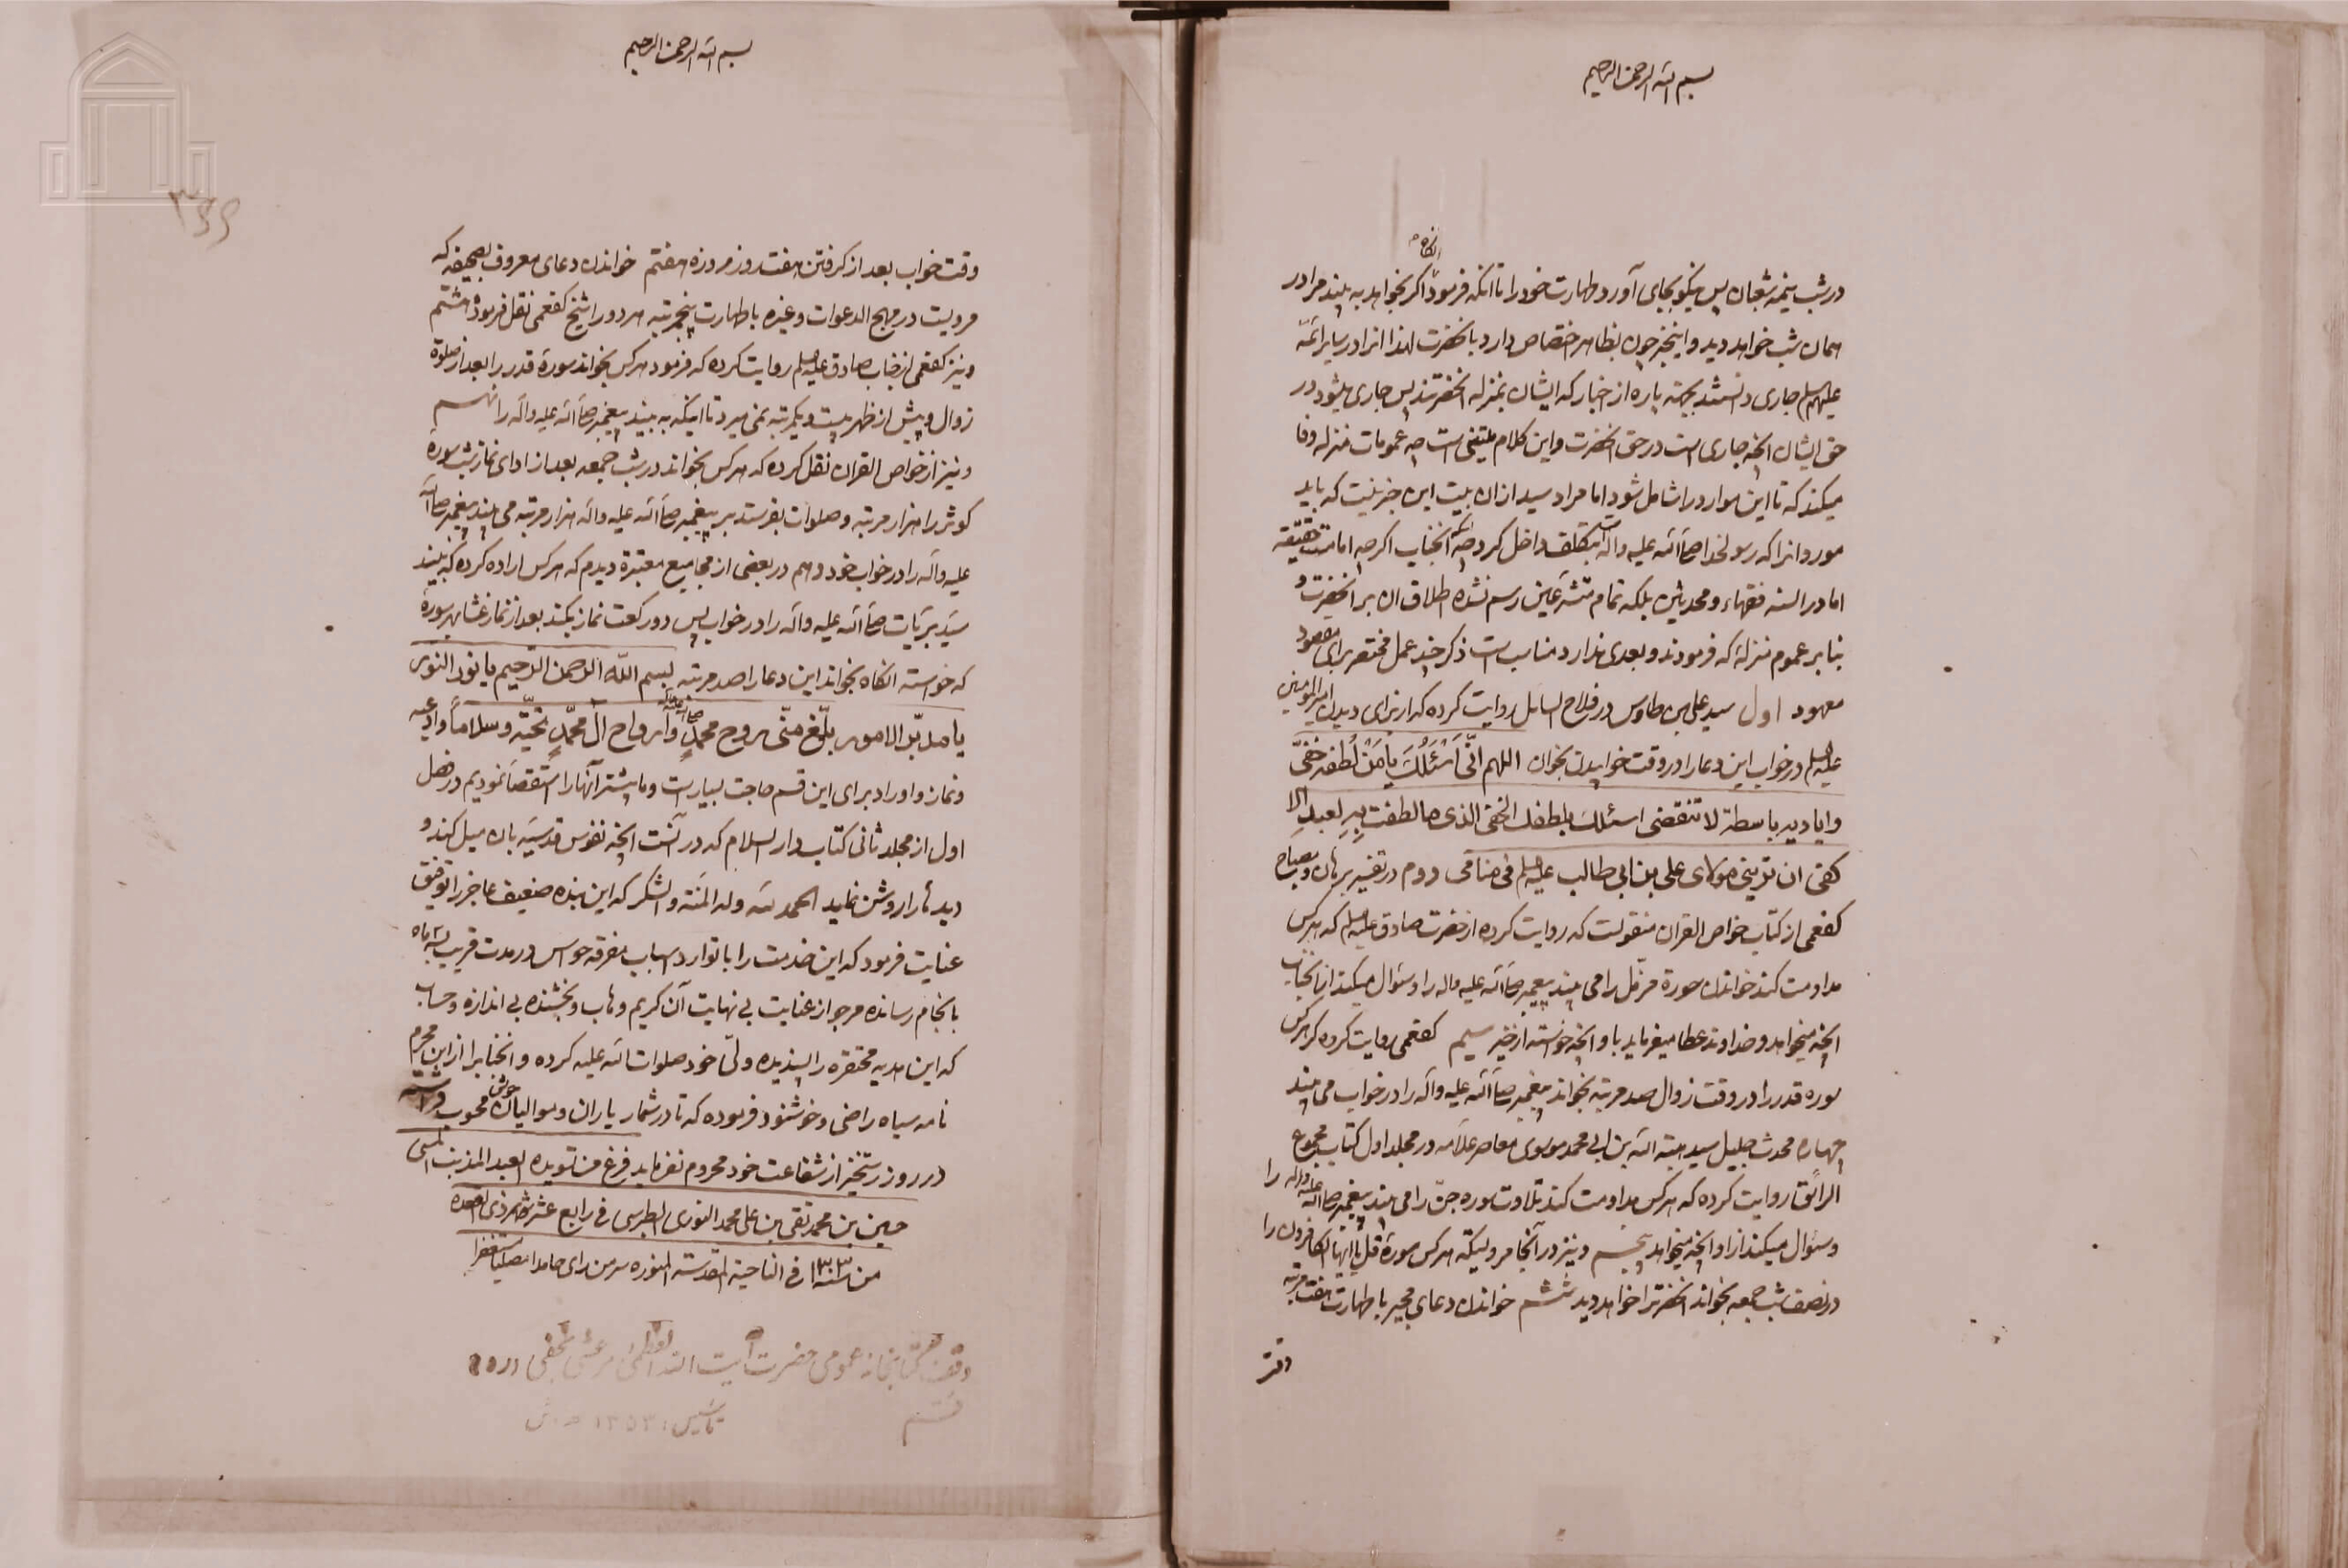 بسم الله الرحمن الرحیم
انگاه
در شب نیمه شعبان پس نیکو بجای آورد طهارت خود را تا آنکه فرمود اگر بخواهد به بیند مرا در
همان شب خواهد دید و اینخبر چون بظاهر اختصاص دارد بانحضرت لهذا انرا در سایر ائمه
علیهم السلم جاری دانستند بجهة پاره از اخبار که ایشان بمنزله انحضرتند پس جاری میشود در
حق ایشان انچه جاری است در حق انحضرت و این کلام مبتنی است چه عمومات منزله وفا
میکند که تا این موارد را شامل شود اما مراد سید از ان بیت این خبر نیست که باید
مورد انرا که رسولخدا صلی الله علیه وآله است بتکلف داخل کرد چه انجناب اگر چه امامست حقیقة
اما در السنه فقهاء و محدثین بلکه تمام متشرعین رسم نشده اطلاق ان بر انحضرت و
بنابر عموم منزلۀ که فرمودند و بعدی ندارد مناسب است ذکر چند عمل مختصر برای مقصود
معهود اول سید علی بن طاوس در فلاح السائل روایت کرده که از برای دیدن امیرالمومنین
علیه السلم در خواب این دعا را در وقت خوابیدن بخوان اللهم انّی اَسْئَلُكَ یا مَنْ لُطْفه خَفیّ
و ایادیه باسطة لا تنقضی اسئلك بلطفك الخفی الذی ما لطفت به لعبد الا
كفی ان ترینی مولای علی بن ابی طالب علیه السلم فی منامی دوم در تفسیر برهان و مصباح
کفعمی از کتاب خواص القران منقولست که روایت کرده از حضرت صادق علیه السلم که هر کس
مداومت کند خواندن سورة مزمّل را می بیند پیغمبر صلی الله علیه واله را و سئوال میکند از انجناب
انچه میخواهد و خداوند عطا میفرماید باو انچه خواسته از خیر سیم کفعمی روایت کرده که هر کس
سوره قدر را در وقت زوال صد مرتبه بخواند پیغمبر صلی الله علیه وآله را در خواب می بیند
چهارم محدث جلیل سید هبة الله بن ابی محمد موسوی معاصر علّامه در مجلد اول کتاب مجموع
الرائق روایت کرده که هر کس مداومت کند تلاوت سوره جن را می بیند پیغمبر صلی الله علیه وآله را
و سئوال میکند از او انچه میخواهد پنجم و نیز در آنجا مرویست که هر کس سورۀ قل یا ایها الکافرون را
در نصف شب جمعه بخواند انحضرترا خواهد دید ششم خواندن دعای مجیر با طهارت هفت مرتبه
وقت
بسم الله الرحمن الرحیم
وقت خواب بعد از گرفتن هفت روز روزه هفتم خواندن دعای معروف بصحیفه که
مرویست در مهج الدعوات و غیره با طهارت پنجمرتبه هر دو را شیخ کفعمی نقل فرموده هشتم
و نیز کفعمی از جناب صادق علیه السلم روایت کرده که فرمود هر کس بخواند سورۀ قدر را بعد از صلوة
زوال و پیش از ظهر بیست و یکمرتبه نمی میرد تا اینکه به بیند پیغمبر صلی الله علیه وآله را نهم
و نیز از خواص القران نقل کرده که هر کس بخواند در شب جمعه بعد از ادای نماز شب سورة
کوثر را هزار مرتبه و صلوات بفرستد بر پیغمبر صلی الله علیه وآله هزار مرتبه می بیند پیغمبر صلی الله
علیه وآله را در خواب خود دهم در بعضی از مجامیع معتبرة دیدم که هر کس اراده کرده که به بیند
سید بریّات صلی الله علیه وآله را در خواب پس دو رکعت نماز بکند بعد از نماز عشا بهر سورۀ
که خواسته انگاه بخواند این دعا را صد مرتبه بسم الله الرحمن الرّحیم یا نور النّور
یا مدبّر الامور بلّغ منّی روح محمد صلی الله علیه وآله و ارواح آل محمّد تحیّة و سلاماً و ادعیه
و نماز و اوراد برای این قسم حاجت بسیار است و ما بیشتر آنها را استقصا نمودیم در فصل
اول از مجلد ثانی کتاب دار السلام که در آنست انچه نفوس قدسیه بان میل کند و
دیدها را روشن نماید الحمد لله وله المنّة والشکر که این بنده ضعیف عاجز را توفیق
عنایت فرمود که این خدمت را با توارد اسباب مفرقه حواس در مدت قریب بسه ماه
بانجام رسانده مرجو از عنایت بی نهایت آن کریم وهاب و بخشنده بی اندازه و حساب
که این هدیه محقره را پسندیده ولیّ خود صلوات الله علیه کرده و انجنابرا از این مجرم
نامه سیاه راضی و خوشنود فرموده که تا در شمار یاران و موالیان خودش محسوب فرماید
در روز رستخیز از شفاعت خود محروم نفرماید فرغ من تسویده العبد المذنب المسی
حسین بن محمد تقی بن علی محمد النوری الطبرسی فی رابع عشر شهر ذی القعده
من سنه ۱۳۰۳ فی الناحیة المقدسة المنوره سر من رای حامدا مصلیا مستغفرا
وقف کتابخانه عمومی حضرت آیت الله العظمی مرعشی نجفی
قم
تاسیس: ۱۳۵۳ ه‍ .ش